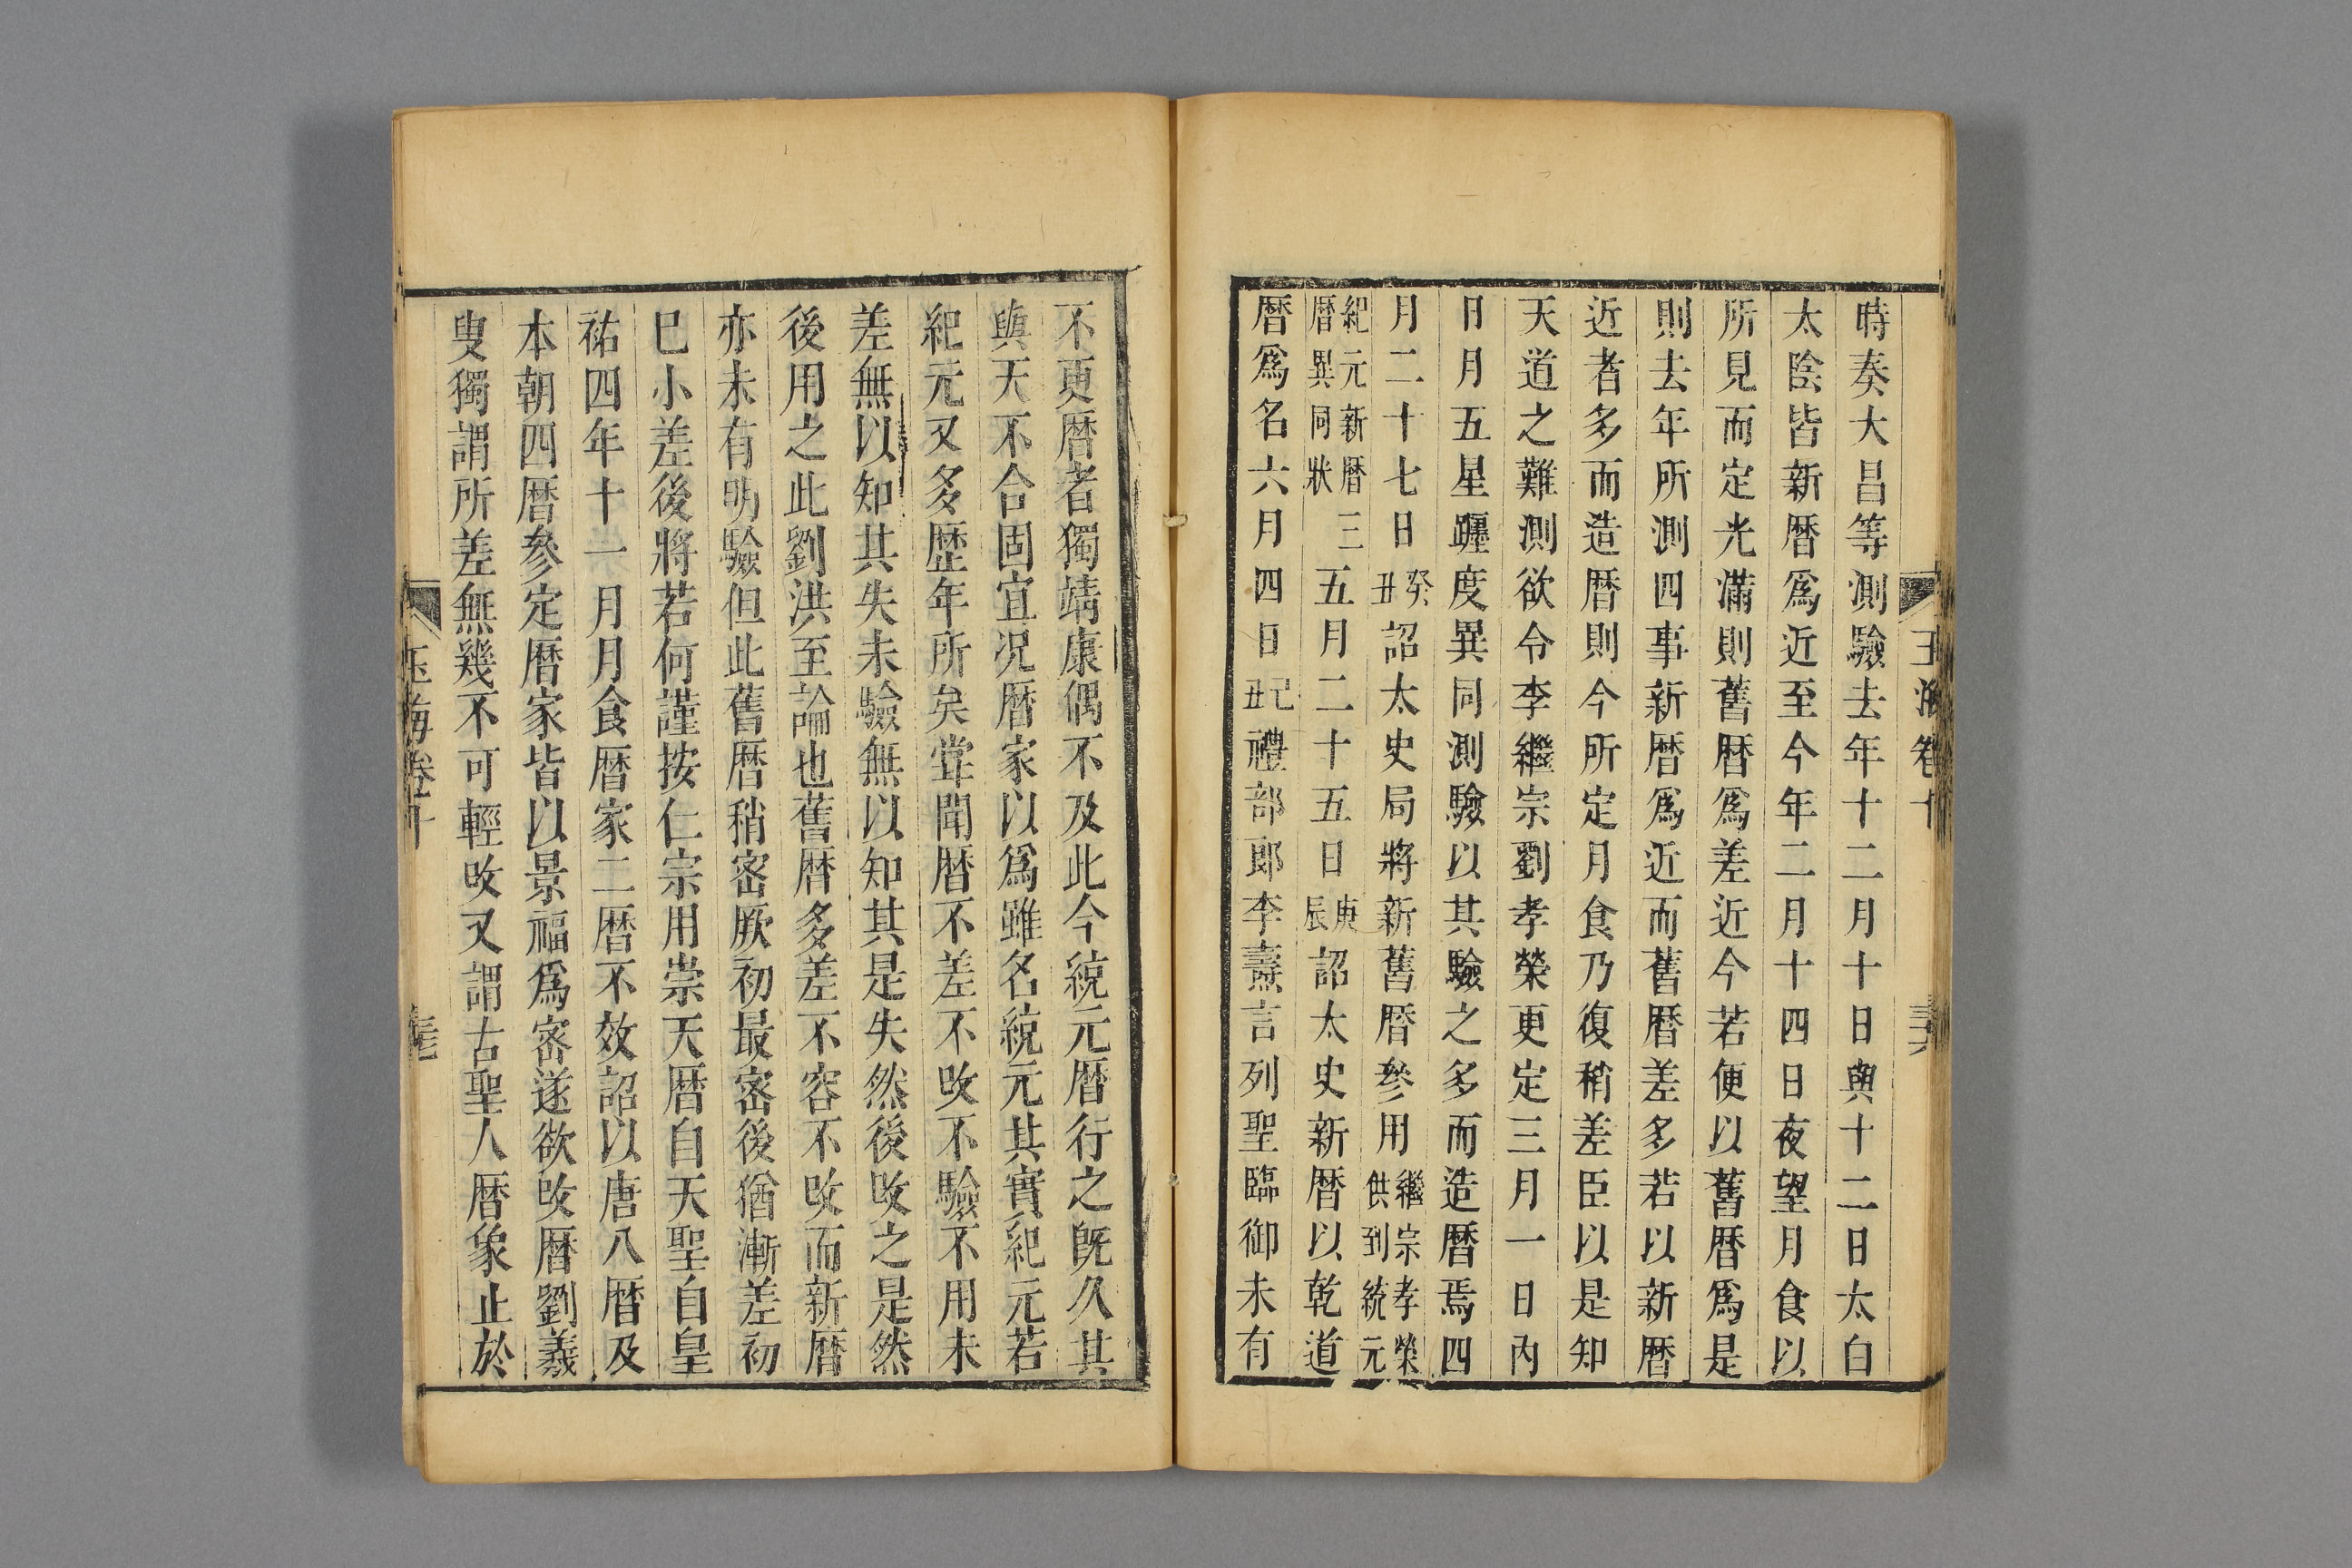 玉海卷十
三六
時奏大昌等測驗去年十二月十日與十二日太白
太陰皆新曆爲近至今年二月十四日夜望月食以
所見而定光滿則舊曆爲差近今若便以舊曆爲是
則去年所測四事新曆爲近而舊曆差多若以新曆
近者多而造曆則今所定月食乃復稍差臣以是知
天道之難測欲令李繼宗劉孝榮更定三月一日內
日月五星躔度異同測驗以其驗之多而造曆焉四
月二十七日癸丑詔太史局將新舊曆參用繼宗孝榮供到統元
紀元新曆三曆異同狀五月二十五日庚辰詔太史新曆以乾道
曆爲名六月四日己丑禮部郎李燾言列聖臨御未有
不更曆者獨靖康偶不及此今統元曆行之旣久其
與天不合固宜况曆家以爲雖名統元其實紀元若
紀元又多歷年所矣甞聞曆不差不攺不驗不用未
差無以知其失未驗無以知其是失然後攺之是然
後用之此劉洪至論也舊曆多差不容不攺而新曆
亦未有明驗但此舊曆稍密厥初最密後猶漸差初
巳小差後將若何謹按仁宗用崇天曆自天聖自皇
祐四年十一月月食曆家二曆不效詔以唐八曆及
本朝四曆參定曆家皆以景福爲密遂欲攺曆劉羲
叟獨謂所差無幾不可輕攺又謂古聖人曆象止於
玉海卷十